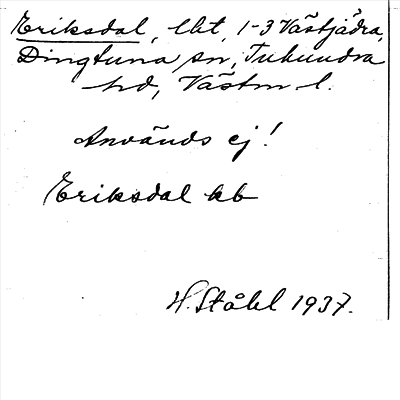 Eriksdal, lht, 1-3 Västjädra,
Dingtuna sn, Tuhundra
hd, Västm l.
Används ej!
Eriksdal kb
H. Ståhl 1937.